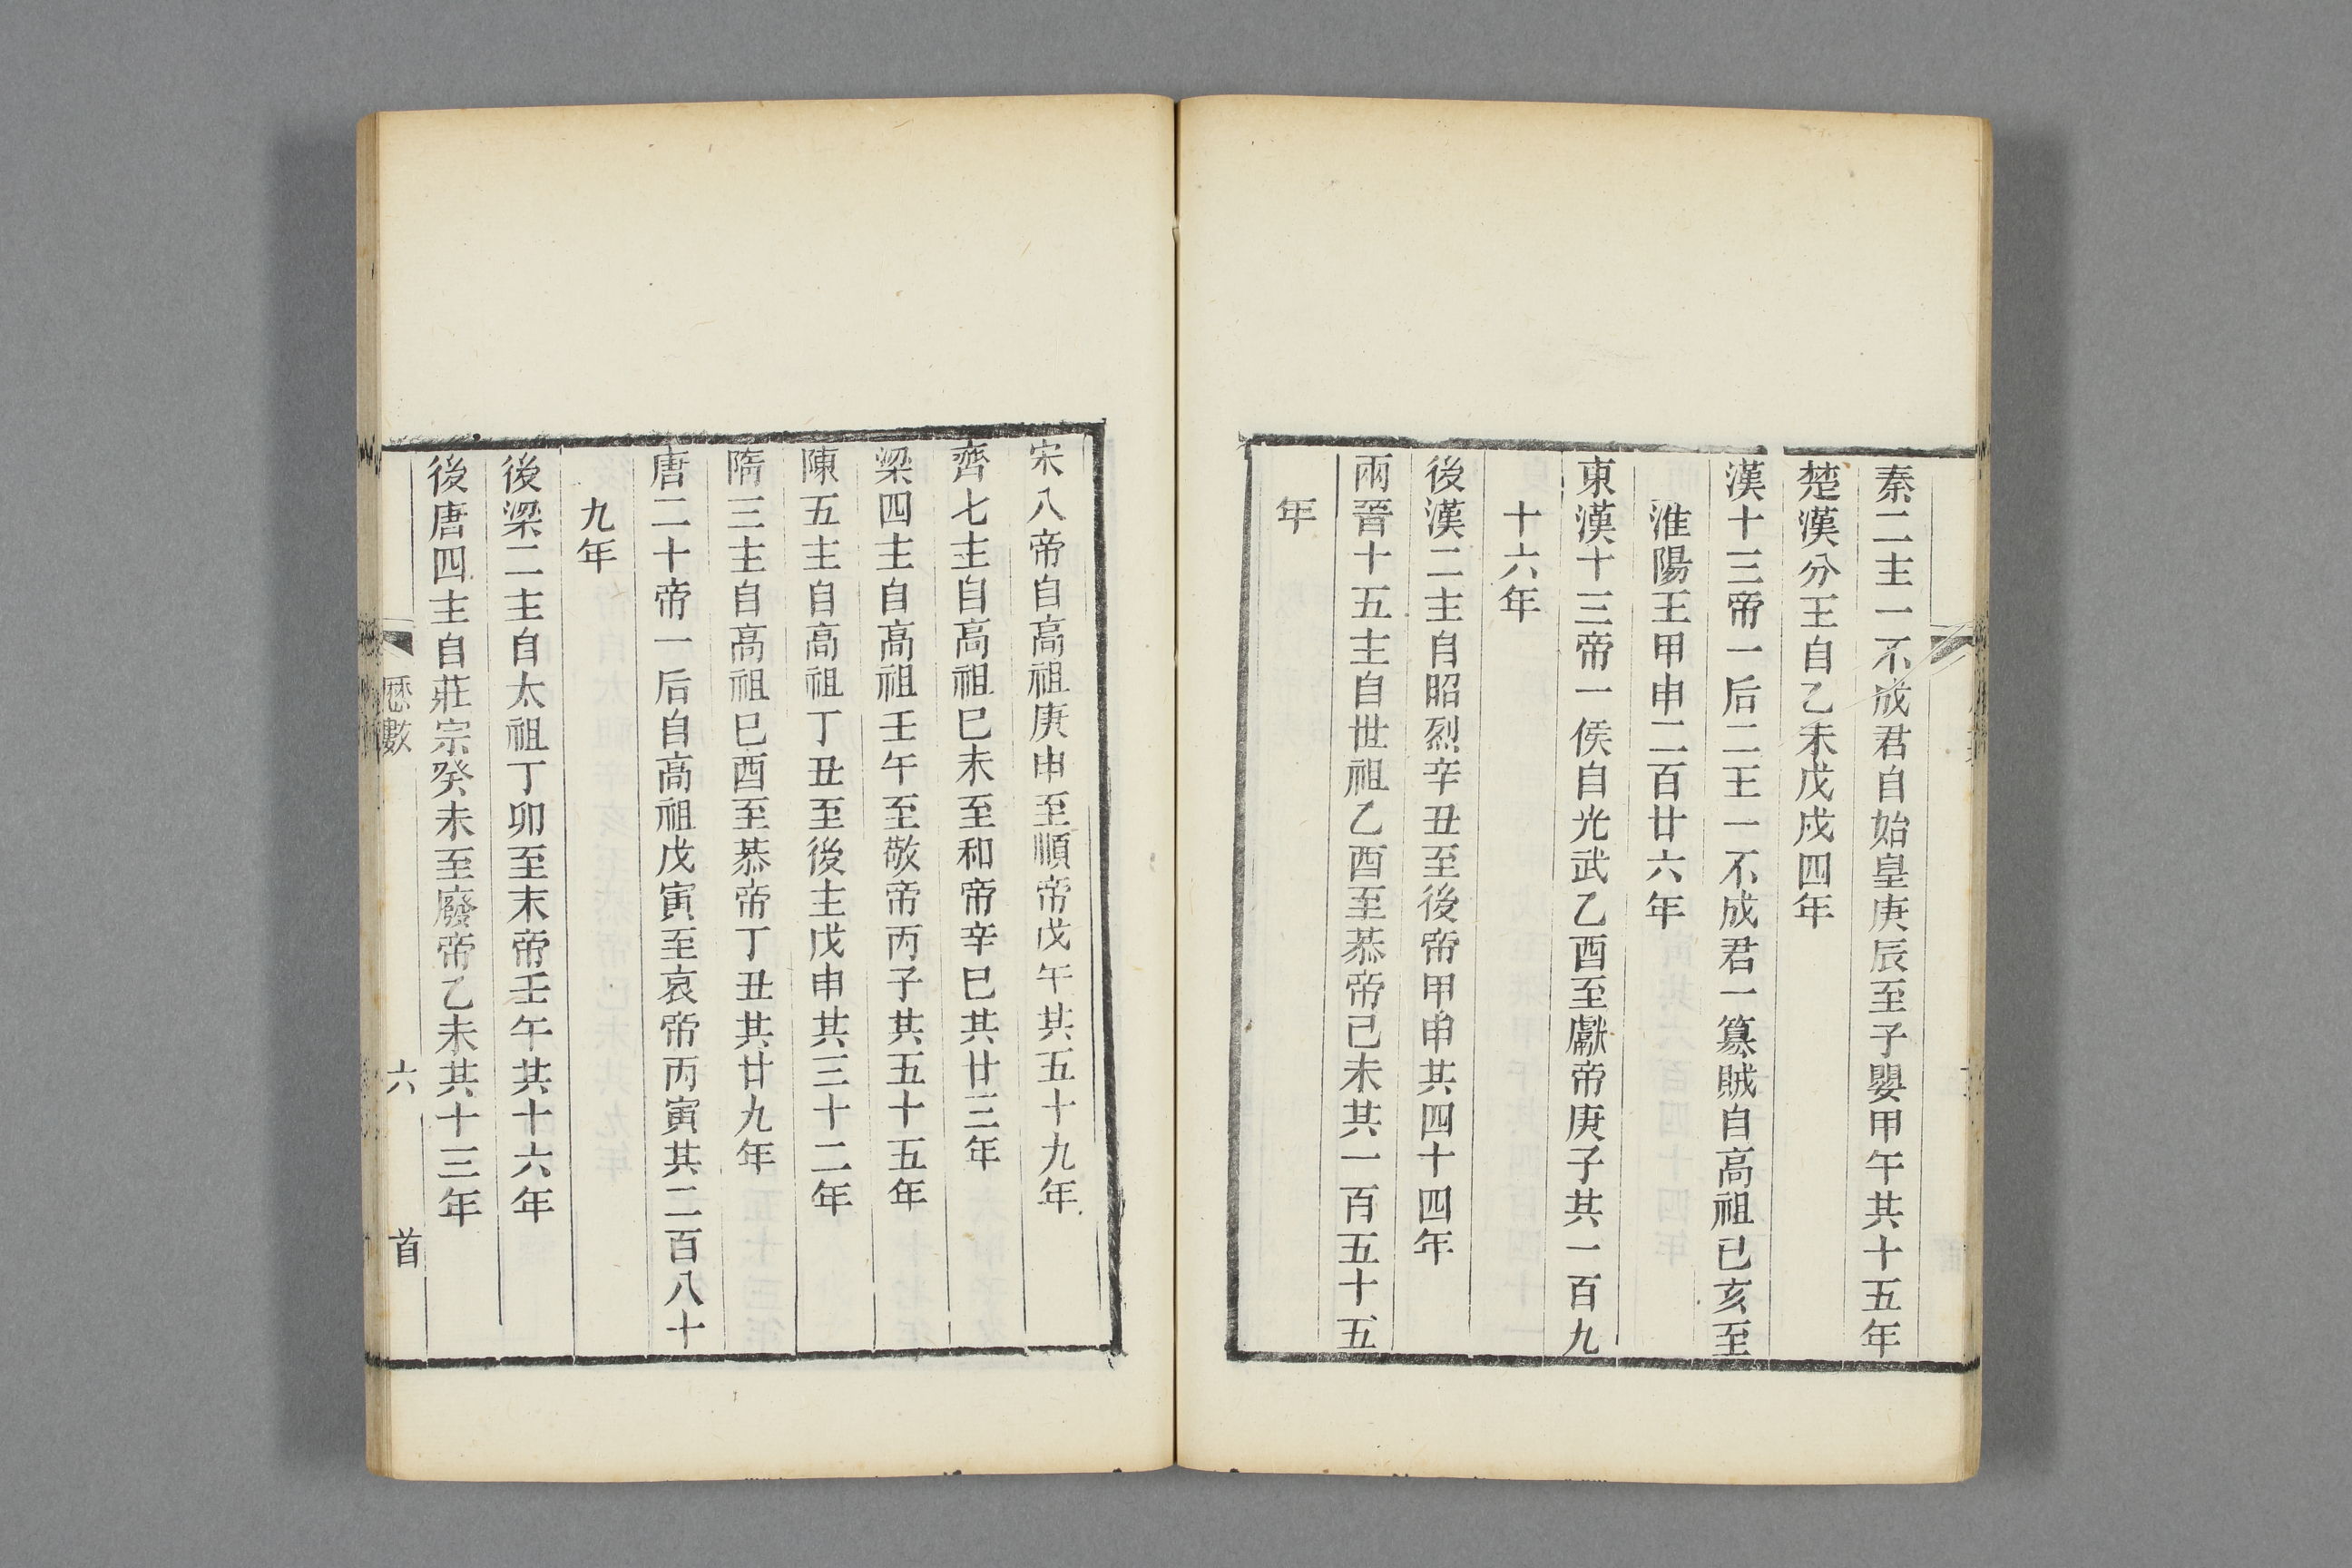 秦二主一不成君自始皇庚辰至子嬰甲午共十五年
楚漢分王自乙未戊戌四年
漢十三帝一后二王一不成君一簒賊自高祖已亥至
淮陽王甲申二百廿六年
東漢十三帝一侯自光武乙酉至獻帝庚子共一百九
十六年
後漢二主自昭烈辛丑至後帝甲申共四十四年
兩晉十五主自世祖乙酉至恭帝己未共一百五十五
年
宋八帝自高祖庚申至順帝戊午共五十九年
齊七主自高祖已未至和帝辛巳共廿三年
梁四主自高祖壬午至敬帝丙子共五十五年
陳五主自高祖丁丑至後主戊申共三十二年
隋三主自高祖巳酉至恭帝丁丑共廿九年
唐二十帝一后自高祖戊寅至哀帝丙寅共二百八十
九年
後梁二主自太祖丁卯至末帝壬午共十六年
後唐四主自莊宗癸未至廢帝乙未共十三年
歷數 六 首